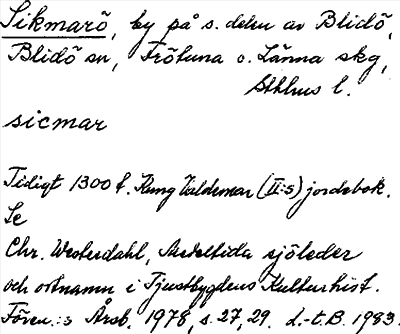 Sikmarö, by på s. delen av Blidö,
Blidö sn, Frötuna o. Länna skg,
Sthlms l.
sicmar
Tidigt 1300 t. Kung Valdemar (II:s) jordebok.
Se
Chr. Westerdahl, Medeltida sjöleder
och ortnamn i Tjustbygdens Kulturhist.
Fören.:s Årsb. 1978, s. 27, 29. L.-t.B. 1983.